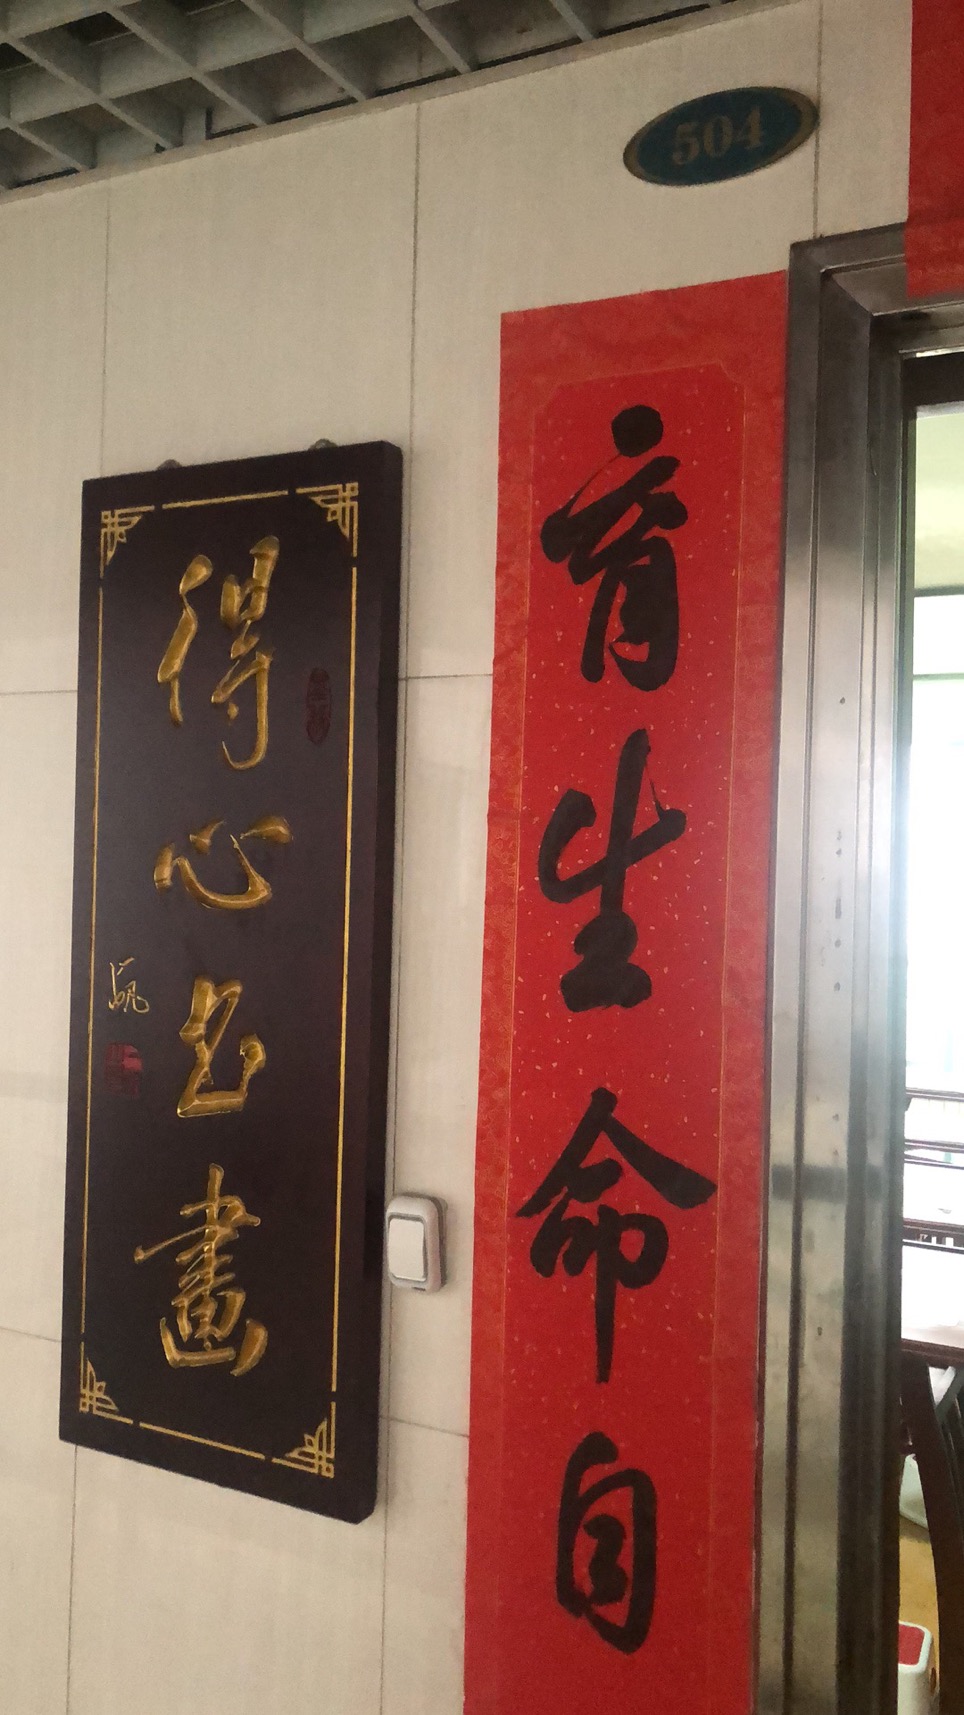 504
育生命自
得心書畫